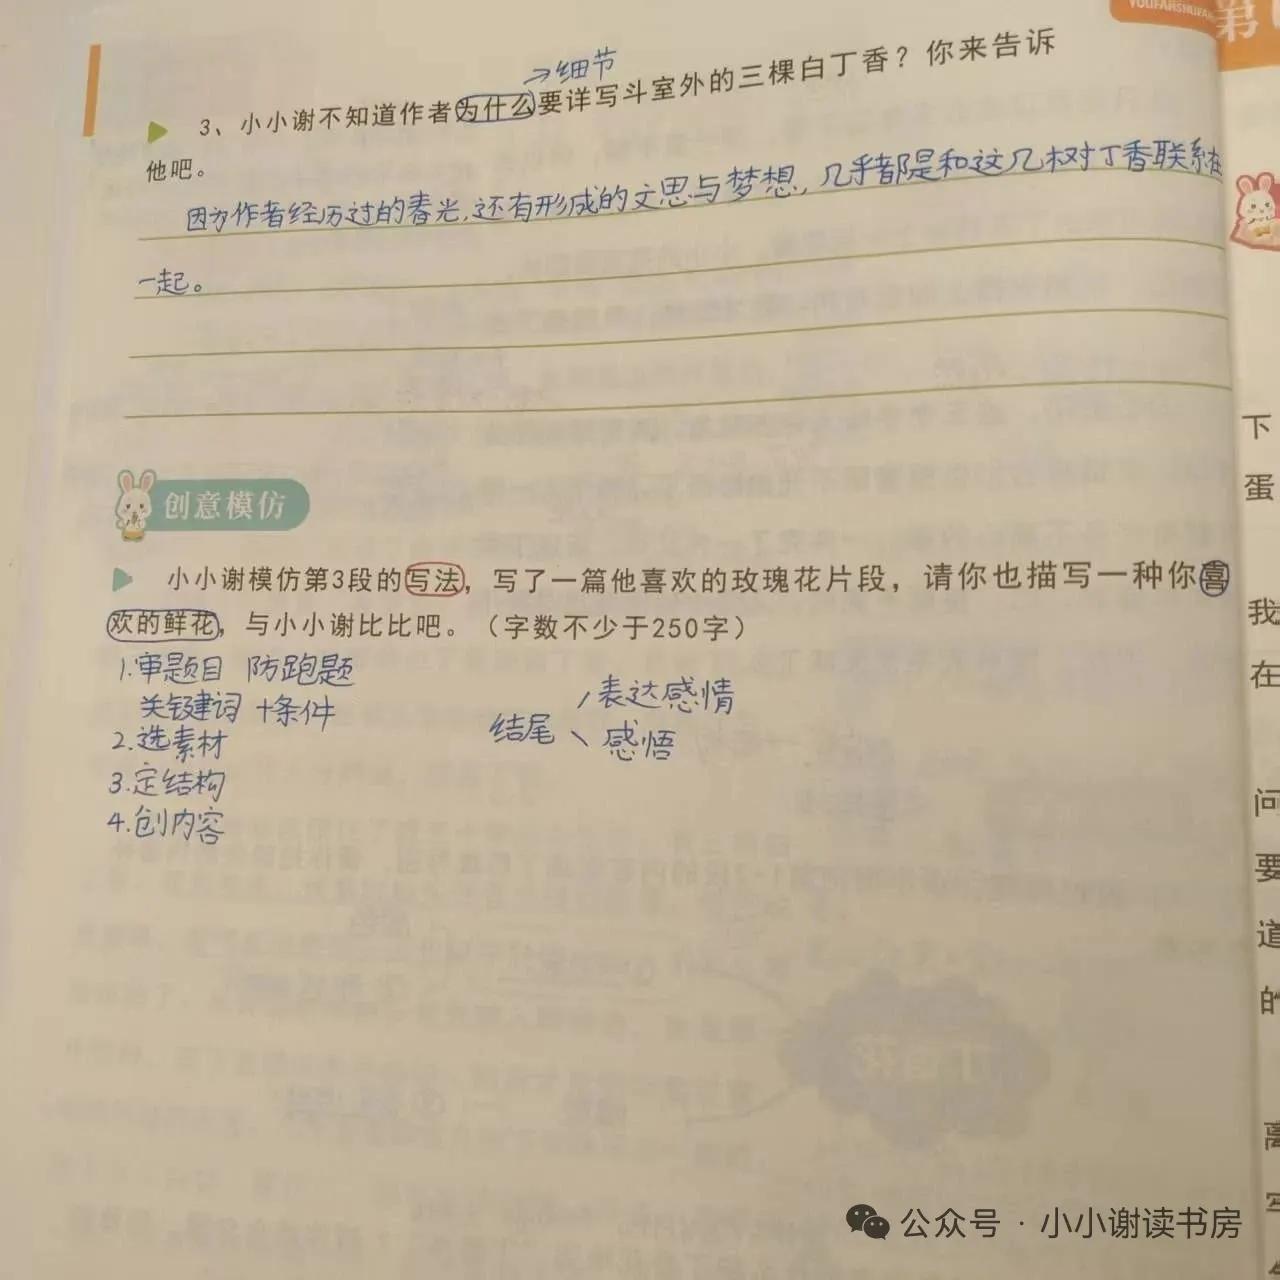 YOUFANSHUFANG
第
→细节
3、小小谢不知道作者为什么要详写斗室外的三棵白丁香？你来告诉
他吧。
因为作者经历过的春光,还有形成的文思与梦想,几乎都是和这几树丁香联系在
一起。
创意模仿
小小谢模仿第3段的写法，写了一篇他喜欢的玫瑰花片段，请你也描写一种你喜
欢的鲜花，与小小谢比比吧。（字数不少于250字）
1.审题目 防跑题
关键词 +条件
2.选素材
3.定结构
4.创内容
结尾
表达感情
感悟
下
蛋
我
在
问
要
道
的
离
写
公众号·小小谢读书房